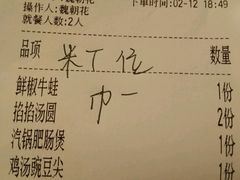 操作人:魏朝花
下单时间:02-12 18:49
就餐人数:2人
品项 数量
鲜椒牛蛙 1份
掐掐汤圆 2份
汽锅肥肠煲 1份
鸡汤豌豆尖 1份